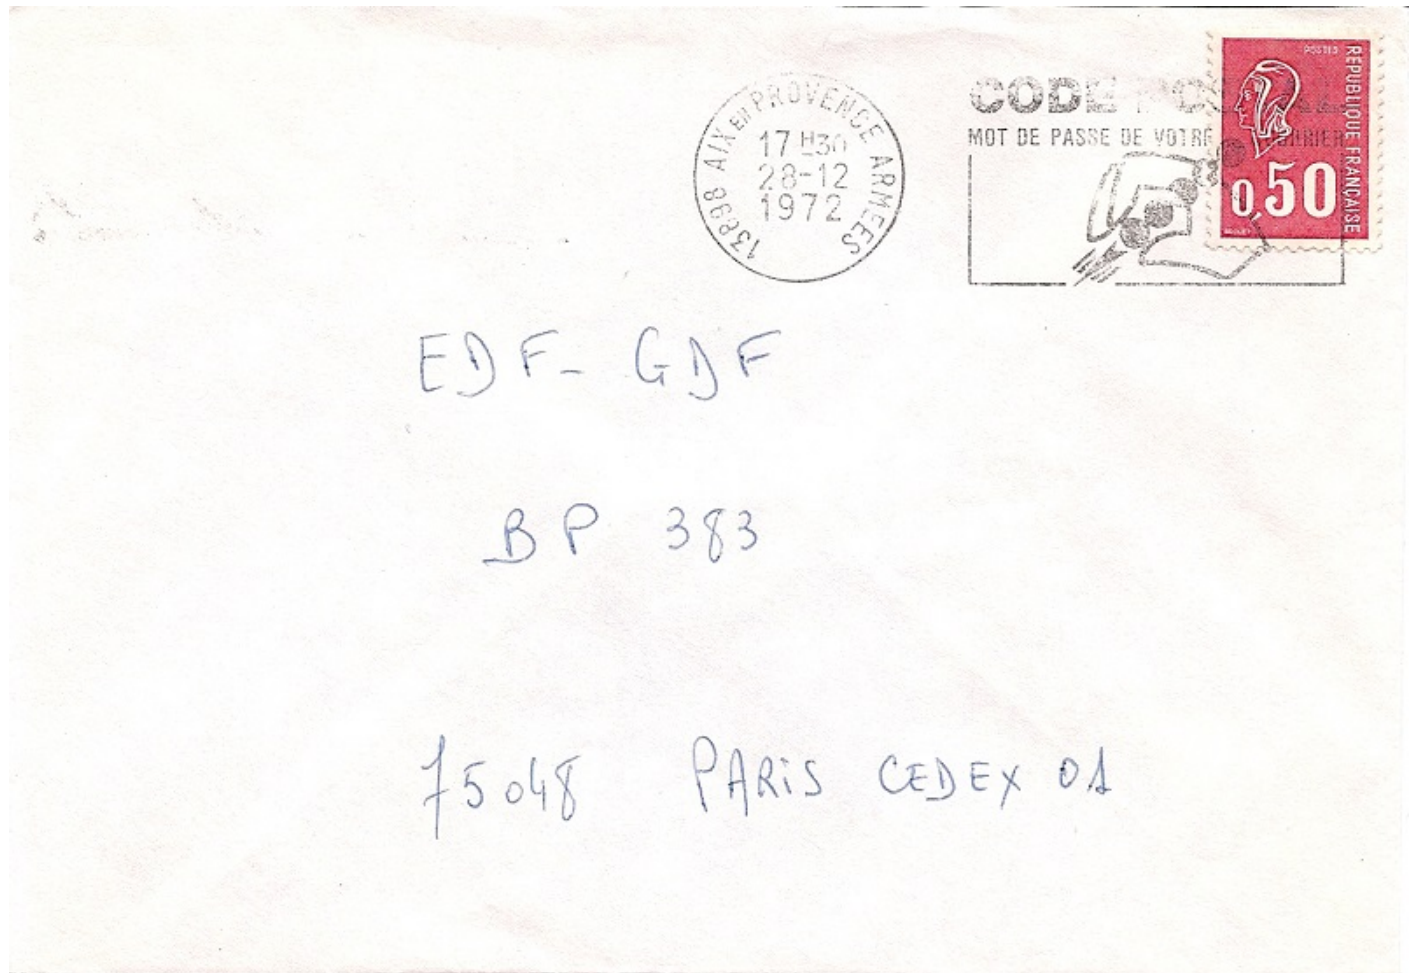 13898 AIX EN PROVENCE ARMEES
17 H30
28-12
1972
CODE
MOT DE PASSE DE VOTRE COURRIER
POSTES
REPUBLIQUE FRANÇAISE
0,50
EDF- GDF
BP 383
75048 PARIS CEDEX 01